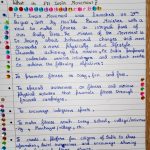 What is Fit India Movement?
Fit India Movement was launched on 29th
August, 2019 by Honourable Prime Minister with a
view to make fitness an integral part of our
daily lives. The mission of the Movement is
to bring about behavioural changes and move
towards a more physically active lifestyle.
Towards achieving this mission, Fit India
proposes to undertake various initiatives and conduct
events to achieve the following objectives:
To promote fitness as easy, fun and free.
To spread awareness on fitness and various
physical activities that promote fitness through
focused campaigns.
To encourage indigenous sports.
To make fitness reach every school, college/university,
panchayat/village, etc.
To create a platform for citizens of India to share
information, drive awareness and encourage sharing